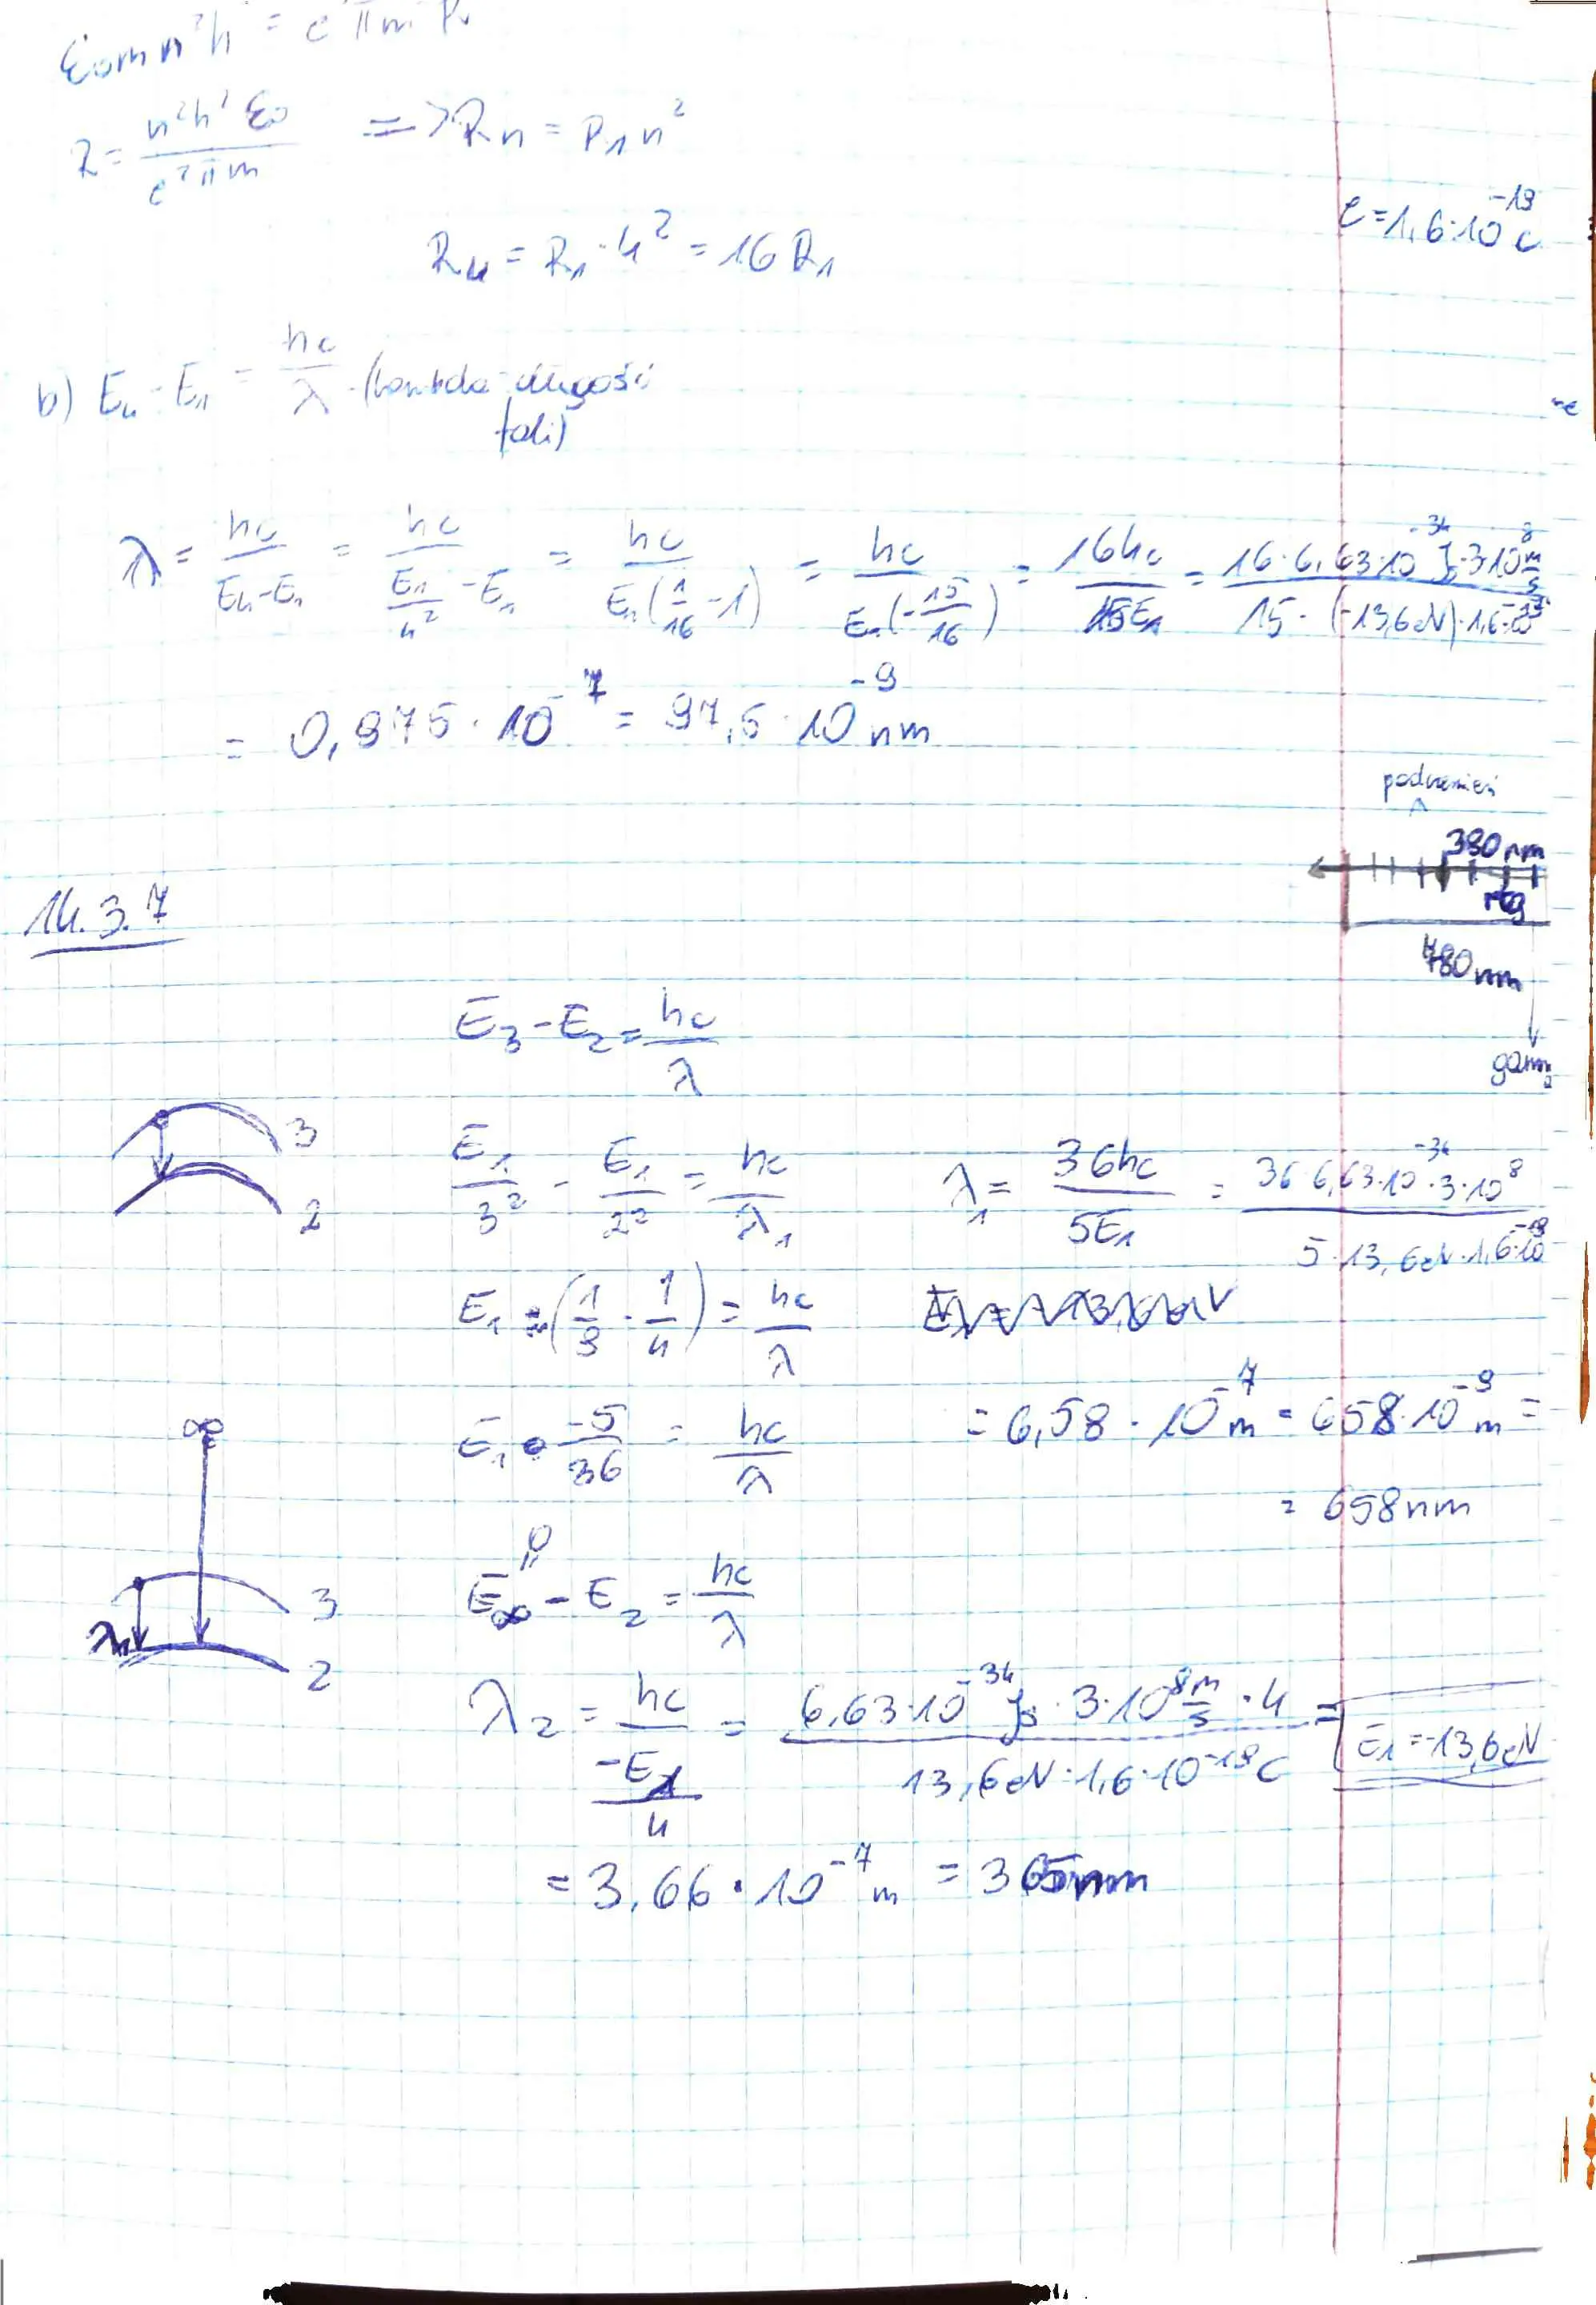 ε₀mn²h² = e²πm R
R = n²h²ε₀ / e²πm => Rn = R₁n²
e = 1,6·10⁻¹⁹ C
R₄ = R₁·4² = 16 R₁
b) E₄ - E₁ = hc / λ - (lambda - długość
fali)
λ = hc / E₄-E₁ = hc / (E₁/4² - E₁) = hc / E₁(1/16 - 1) = hc / E₁(-15/16) = 16hc / 15E₁ = 16·6,63·10⁻³⁴ Js·3·10⁸ m/s / 15·(-13,6eV)·1,6·10⁻¹⁹
= 0,975·10⁻⁷ = 97,5·10⁻⁹ nm
podczerwień
380nm
rtg
780nm
gamma
14.3.7
E₃ - E₂ = hc / λ
3
2
E₁/3² - E₁/2² = hc/λ₁ λ₁ = 36hc / 5E₁ = 36·6,63·10⁻³⁴·3·10⁸ / 5·13,6eV·1,6·10⁻¹⁹
E₁ · (1/9 - 1/4) = hc / λ
E₁ · -5/36 = hc / λ = 6,58·10⁻⁷ m = 658·10⁻⁹ m =
= 658nm
∞
3
λ₁
2
0
E∞ - E₂ = hc / λ
λ₂ = hc / (-E₁/4) = 6,63·10⁻³⁴ Js·3·10⁸ m/s·4 / 13,6eV·1,6·10⁻¹⁹ C =
E₁ = -13,6eV
= 3,66·10⁻⁷ m = 365nm